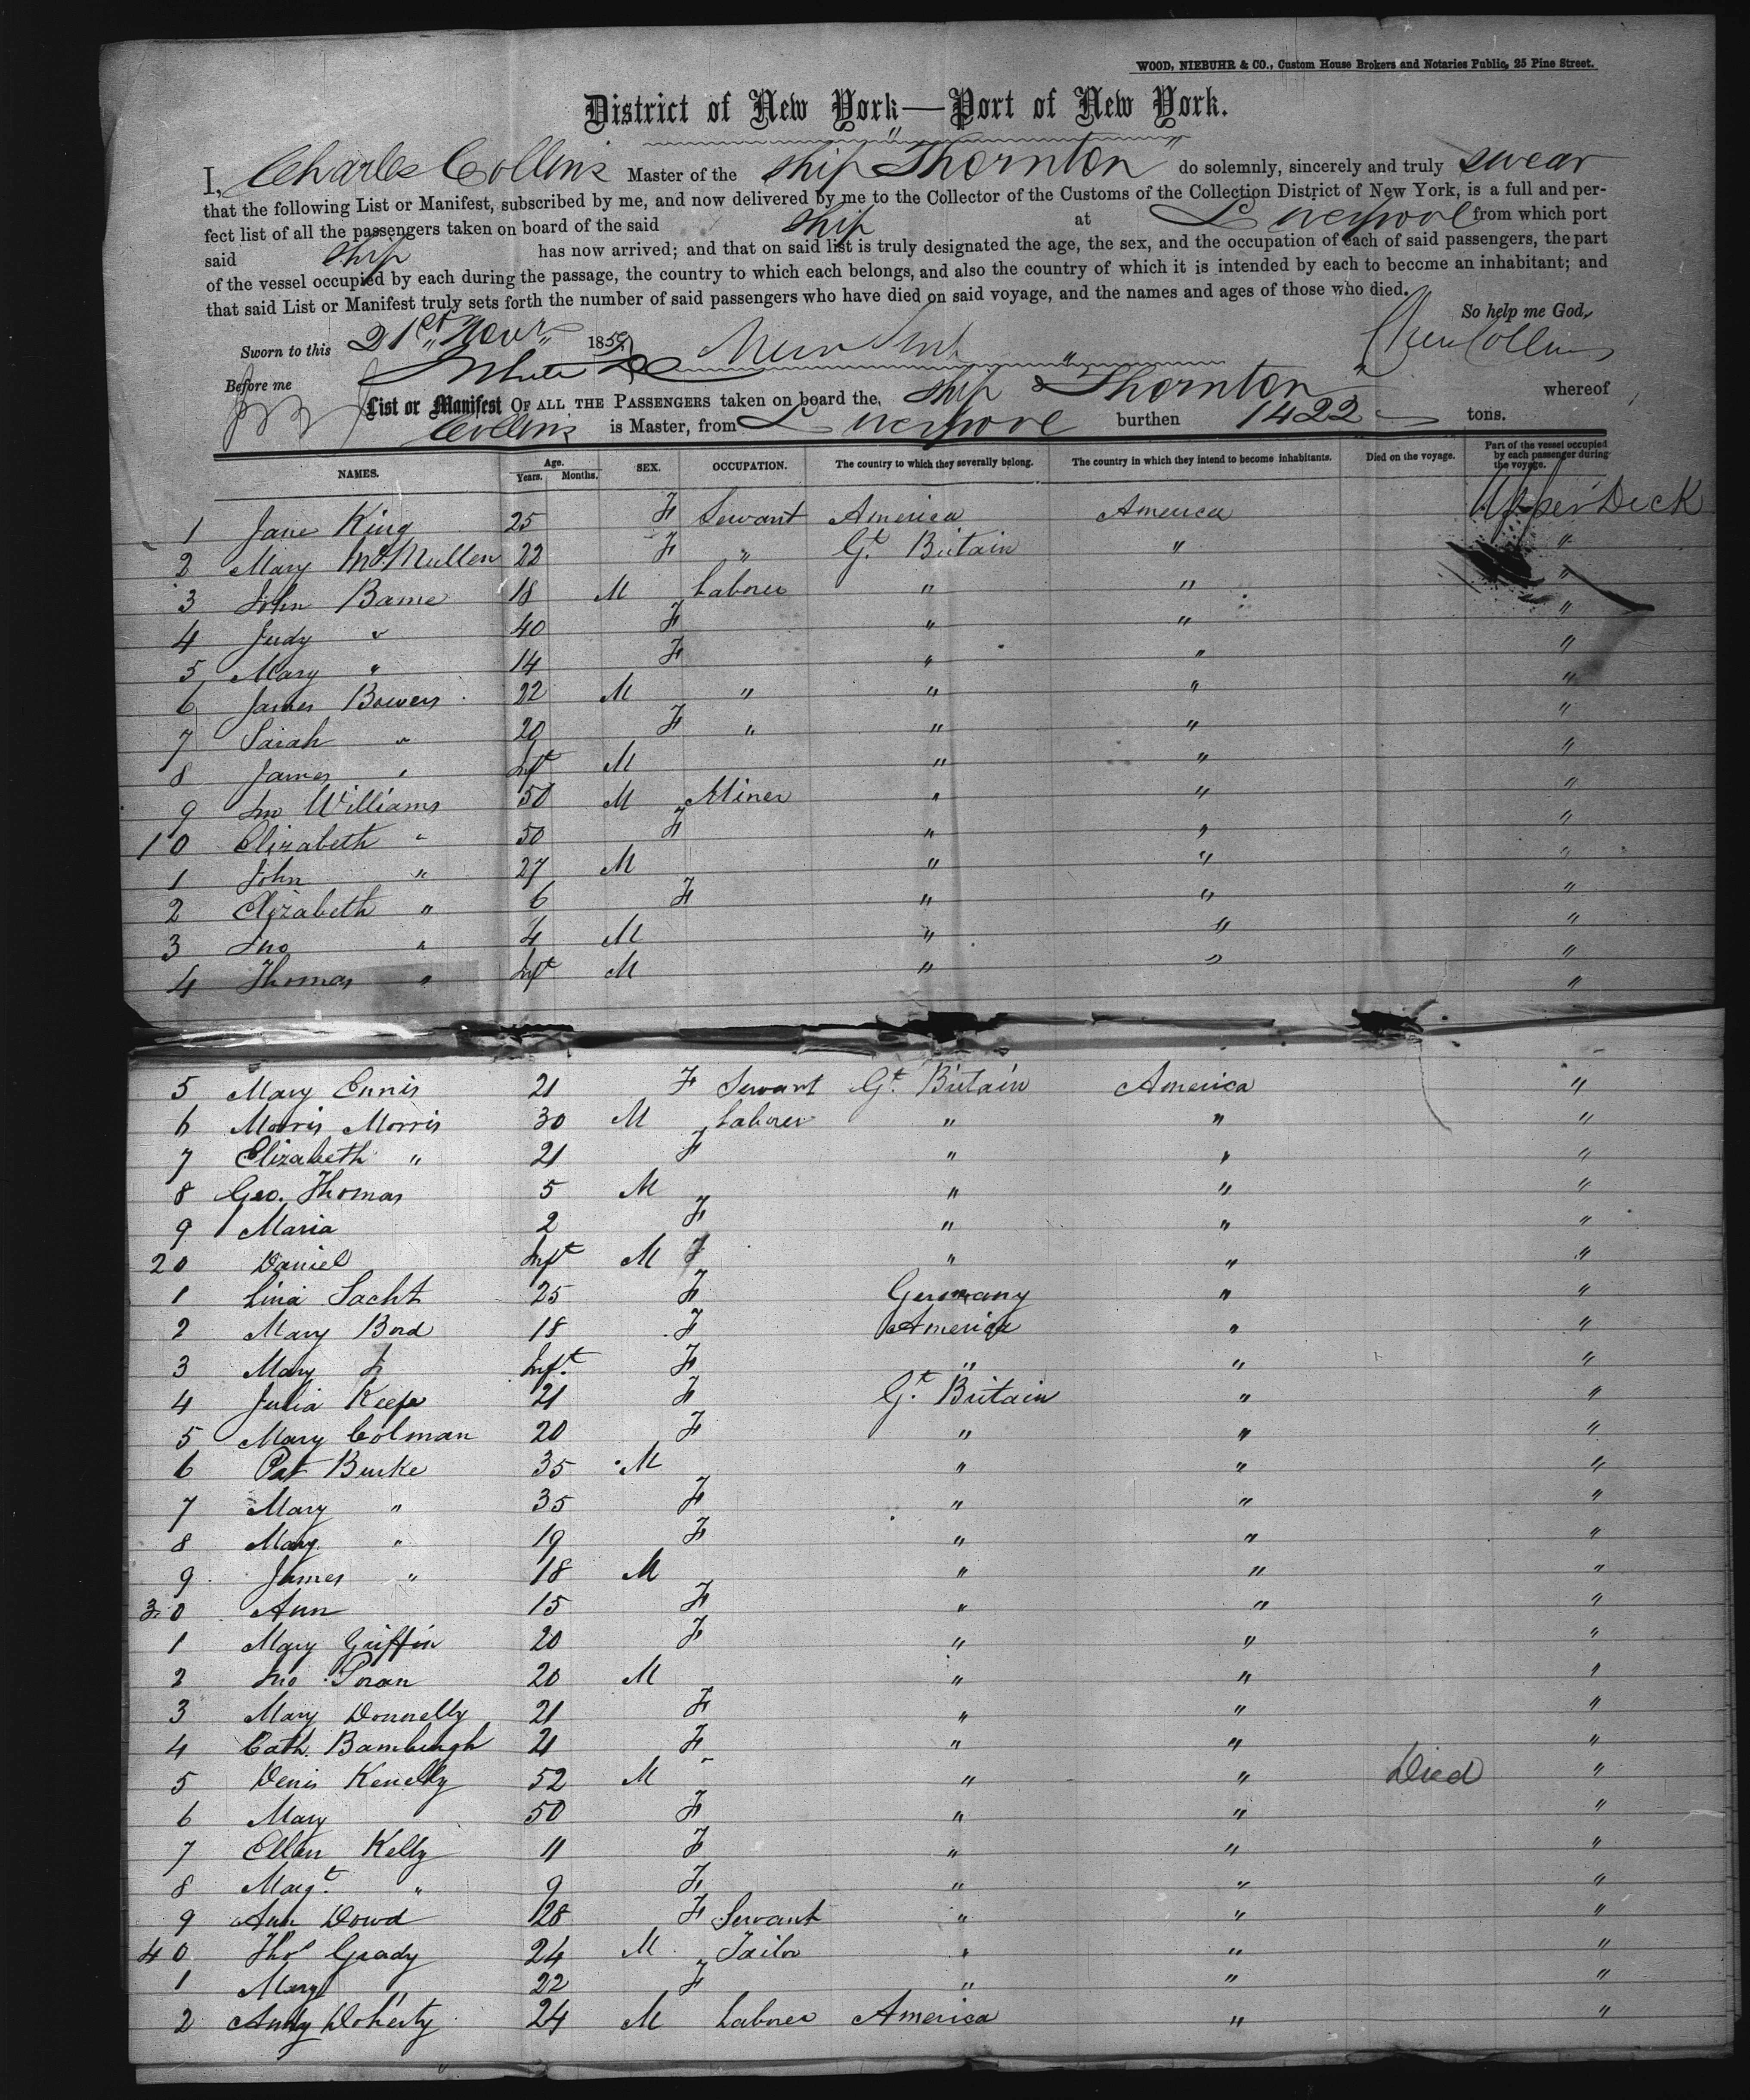 WOOD, NIEBUHR & CO., Custom House Brokers and Notaries Public, 25 Pine Street.
District of New York—Port of New York.
I, Charles Collins Master of the ship "Thornton" do solemnly, sincerely and truly swear
that the following List or Manifest, subscribed by me, and now delivered by me to the Collector of the Customs of the Collection District of New York, is a full and per-
fect list of all the passengers taken on board of the said ship at Liverpool from which port
said ship has now arrived; and that on said list is truly designated the age, the sex, and the occupation of each of said passengers, the part
of the vessel occupied by each during the passage, the country to which each belongs, and also the country of which it is intended by each to become an inhabitant; and
that said List or Manifest truly sets forth the number of said passengers who have died on said voyage, and the names and ages of those who died.
So help me God,
Sworn to this 21st Novr 1859 Chas Collins
Before me
List or Manifest OF ALL THE PASSENGERS taken on board the, ship "Thornton" whereof
Collins is Master, from Liverpool burthen 1422 tons.
NAMES. Age. Years. Months. SEX. OCCUPATION. The country to which they severally belong. The country in which they intend to become inhabitants. Died on the voyage. Part of the vessel occupied by each passenger during the voyage.
1 Jane King 25 F Servant America America Upper Deck
2 Mary McMullen 22 F " Gt. Britain " "
3 John Barne 18 M Laborer " " "
4 Judy " 40 F " " "
5 Mary " 14 F " " "
6 James Bowers 22 M " " " "
7 Sarah " 20 F " " " "
8 James " Inft M " " "
9 Jno Williams 50 M Miner " " "
10 Elizabeth " 50 F " " "
1 John " 27 M " " "
2 Elizabeth " 6 F " " "
3 Jno " 4 M " " "
4 Thomas " Inft M " " "
5 Mary Ennis 21 F Servant Gt. Britain America "
6 Morris Morris 30 M Laborer " " "
7 Elizabeth " 21 F " " "
8 Geo. Thomas 5 M " " "
9 Maria 2 F " " "
20 Daniel Inft M " " "
1 Lina Sacht 25 F Germany " "
2 Mary Bord 18 F America " "
3 Mary Inft. F " " "
4 Julia Keefe 21 F Gt. Britain " "
5 Mary Colman 20 F " " "
6 Pat Burke 35 M " " "
7 Mary " 35 F " " "
8 Mary " 19 F " " "
9 James " 18 M " " "
30 Ann 15 F " " "
1 Mary Griffin 20 F " " "
2 Jno 20 M " " "
3 Mary Donnelly 21 F " " "
4 Cath. Bamburgh 21 F " " "
5 Denis Kenelly 52 M " " Died "
6 Mary 50 F " " "
7 Ellen Kelly 11 F " " "
8 Margt. " 9 F " " "
9 Ann Dowd 28 F Servant " " "
40 Thos Grady 24 M Tailor " " "
1 Mary 22 F " " "
2 Andy Doherty 24 M Laborer America " "